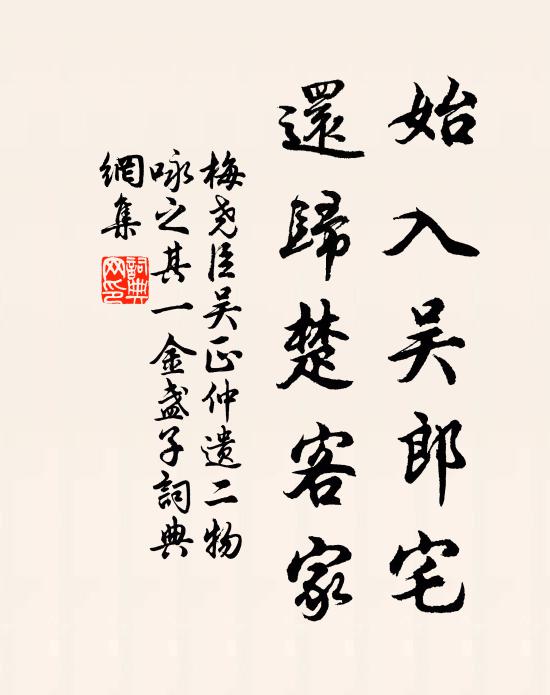 始入吴郎宅
還歸楚客家
梅尧臣吴正仲遗二物
咏之其一金盏子詞典
網集
詞典
网印